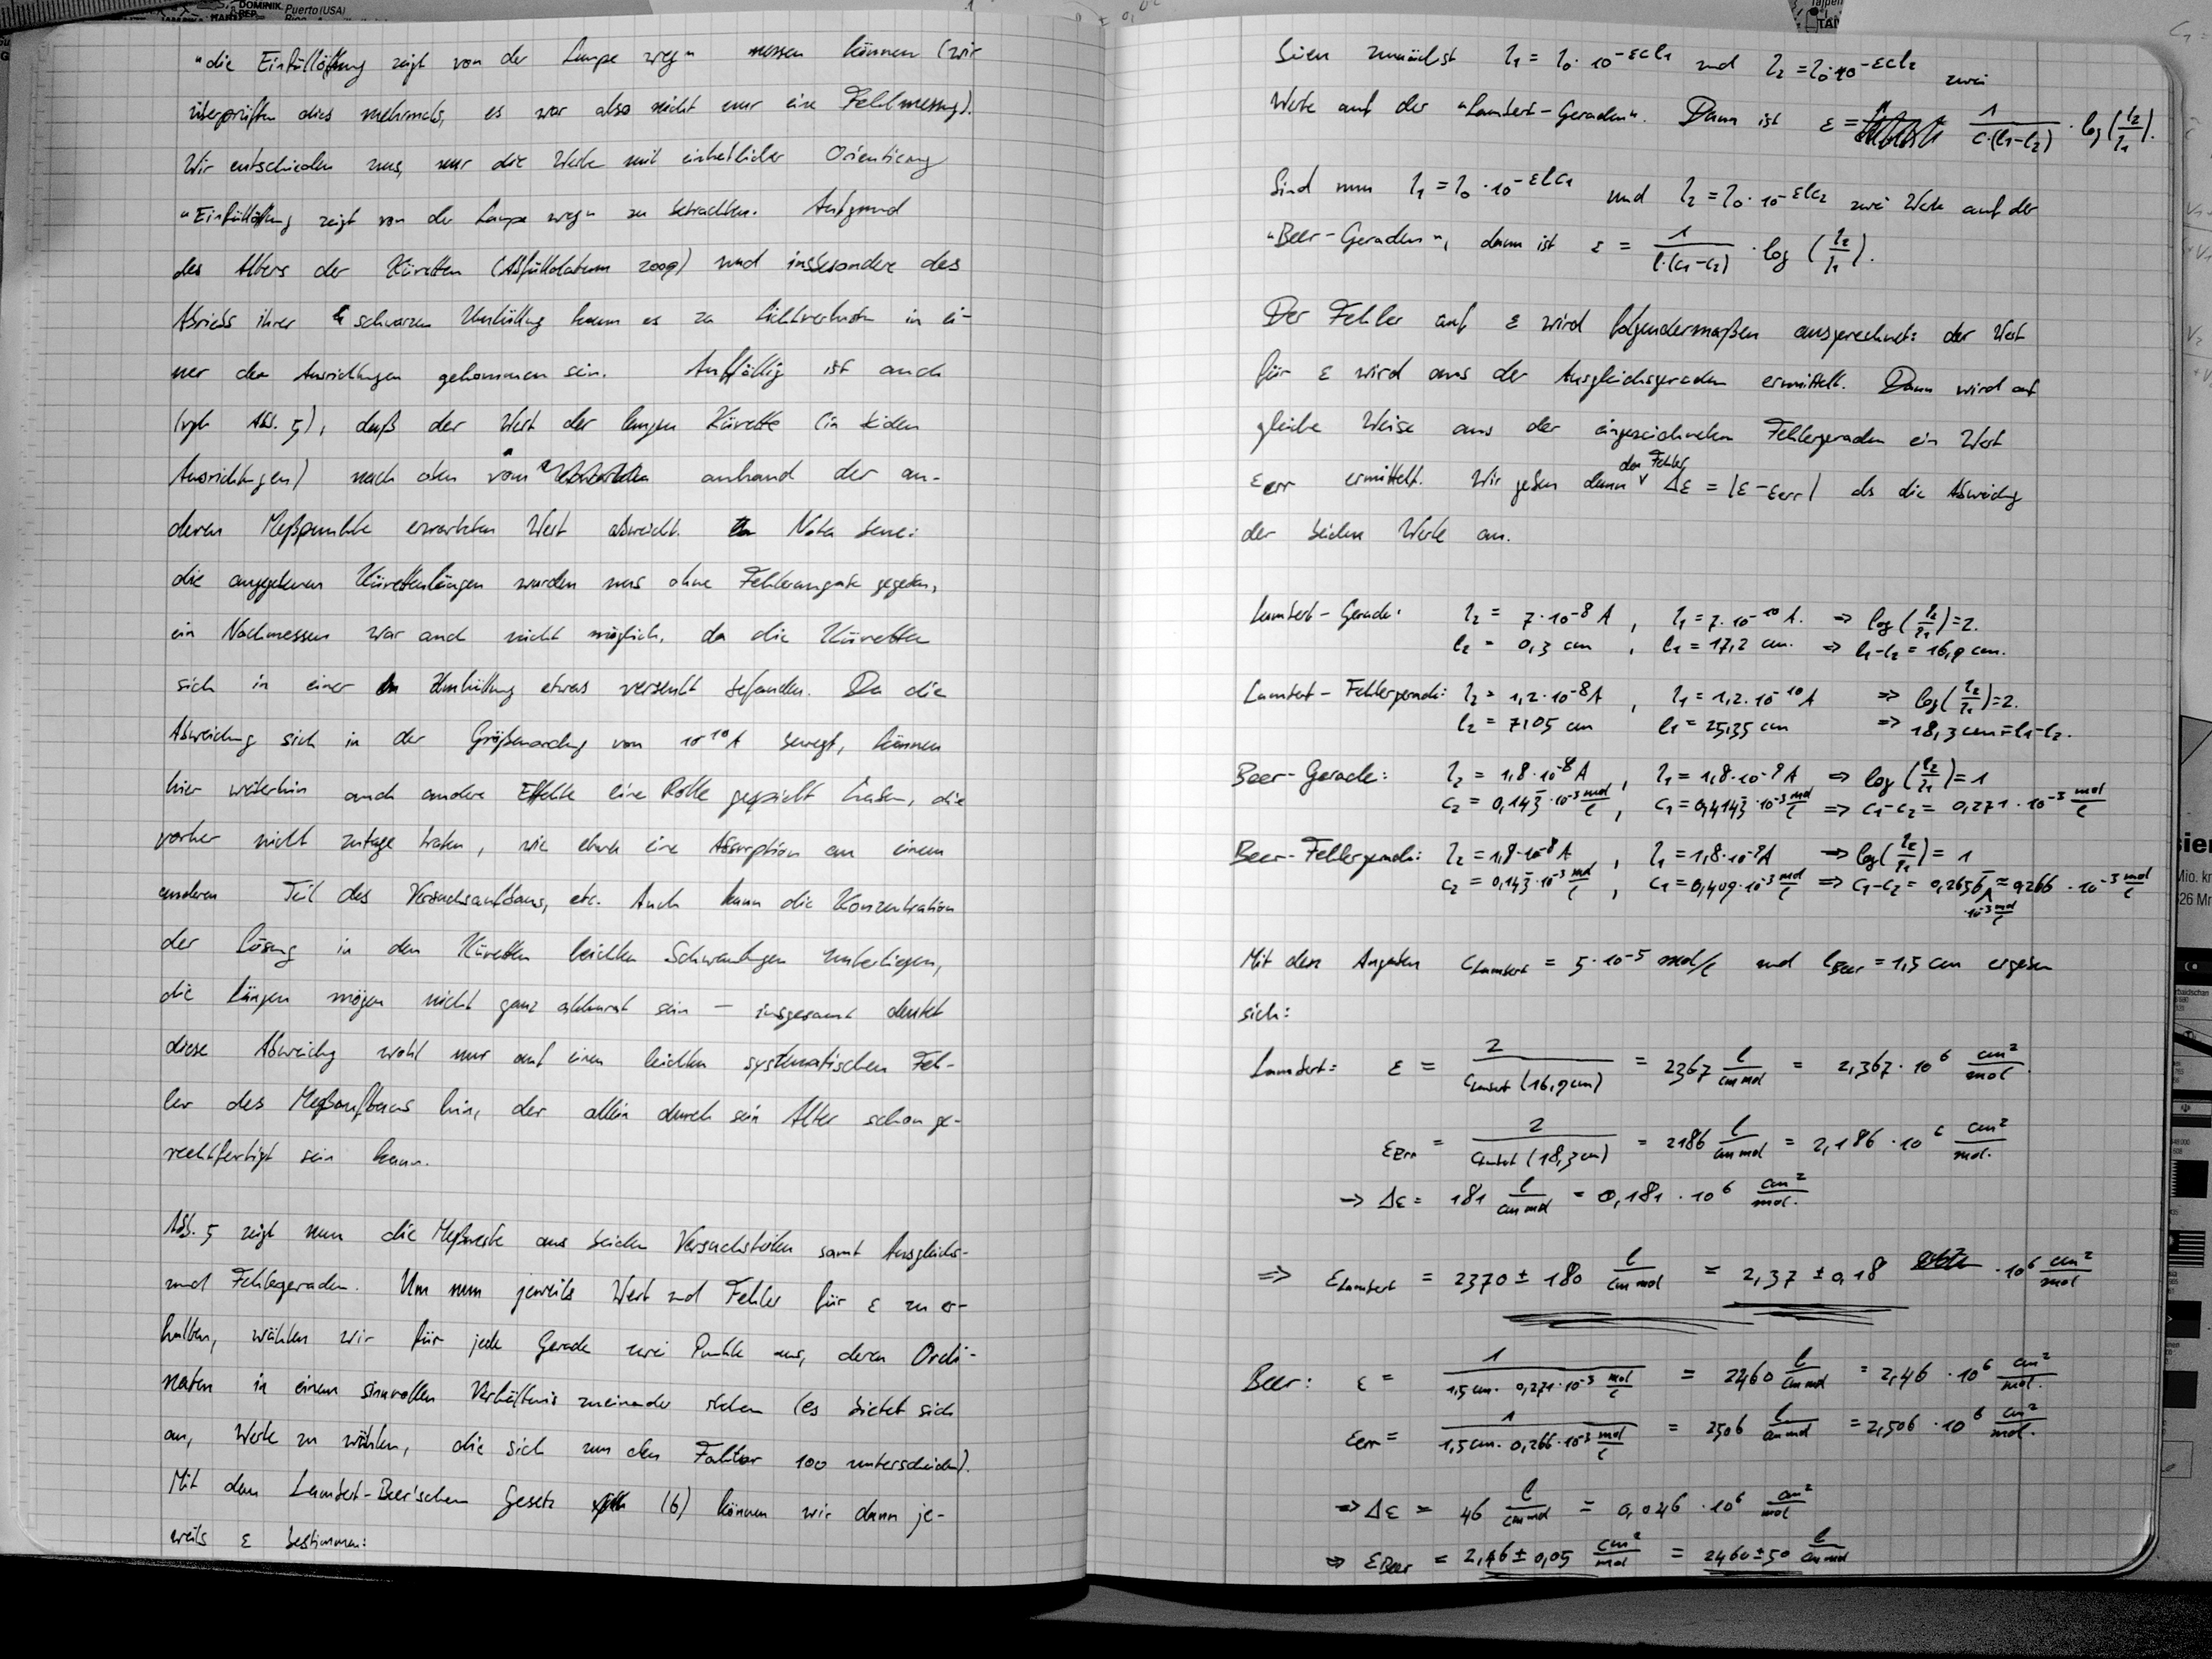 "die Einfüllöffnung zeigt von der Lampe weg" messen können (wir
überprüften dies mehrmals, es war also nicht nur eine Fehlmessung).
Wir entschieden uns, nur die Werte mit einheitlicher Orientierung
"Einfüllöffnung zeigt von der Lampe weg" zu betrachten. Aufgrund
des Alters der Küvetten (Abfülldatum 2009) und insbesondere des
Abriebs ihrer schwarzen Umhüllung kann es zu Lichtverlusten in ei-
ner der Ausrichtungen gekommen sein. Auffällig ist auch
(vgl. Abb. 5), daß der Wert der langen Küvette (in beiden
Ausrichtungen) nach oben vom anhand der an-
deren Meßpunkte erwarteten Wert abweicht. Nota bene:
die angegebenen Küvettenlängen wurden uns ohne Fehlerangabe gegeben,
ein Nachmessen war auch nicht möglich, da die Küvetten
sich in einer Umhüllung etwas versenkt befanden. Da die
Abweichung sich in der Größenordnung von 10^-10 A bewegt, können
hier weiterhin auch andere Effekte eine Rolle gespielt haben, die
vorher nicht zutage traten, wie etwa eine Absorption an einem
anderen Teil des Versuchsaufbaus, etc. Auch kann die Konzentration
der Lösung in den Küvetten leichten Schwankungen unterliegen,
die Längen mögen nicht ganz akkurat sein – insgesamt deutet
diese Abweichung wohl nur auf einen leichten systematischen Feh-
ler des Meßaufbaus hin, der allein durch sein Alter schon ge-
rechtfertigt sein kann.
Abb. 5 zeigt nun die Meßwerte aus beiden Versuchsteilen samt Ausgleichs-
und Fehlergeraden. Um nun jeweils Wert und Fehler für ε zu er-
halten, wählen wir für jede Gerade zwei Punkte aus, deren Ordi-
naten in einem sinnvollen Verhältnis zueinander stehen (es bietet sich
an, Werte zu wählen, die sich um den Faktor 100 unterscheiden).
Mit dem Lambert-Beer'schen Gesetz (6) können wir dann je-
weils ε bestimmen:
Seien zunächst I₁ = I₀ · 10^-εcl₁ und I₂ = I₀ · 10^-εcl₂ zwei
Werte auf der "Lambert-Geraden". Dann ist ε = 1/(c·(l₁-l₂)) · log(I₂/I₁).
Sind nun I₁ = I₀ · 10^-εlc₁ und I₂ = I₀ · 10^-εlc₂ zwei Werte auf der
"Beer-Geraden", dann ist ε = 1/(l·(c₁-c₂)) · log(I₂/I₁).
Der Fehler auf ε wird folgendermaßen ausgerechnet: der Wert
für ε wird aus der Ausgleichsgeraden ermittelt. Dann wird auf
gleiche Weise aus der eingezeichneten Fehlergeraden ein Wert
ε_err ermittelt. Wir geben dann den Fehler Δε = |ε - ε_err| als die Abweichung
der beiden Werte an.
Lambert-Gerade: I₂ = 7·10^-8 A , I₁ = 7·10^-10 A. ⇒ log(I₂/I₁) = 2.
l₂ = 0,3 cm , l₁ = 17,2 cm. ⇒ l₁-l₂ = 16,9 cm.
Lambert-Fehlergerade: I₂ = 1,2·10^-8 A , I₁ = 1,2·10^-10 A ⇒ log(I₂/I₁) = 2.
l₂ = 7,05 cm l₁ = 25,35 cm ⇒ 18,3 cm = l₁-l₂.
Beer-Gerade: I₂ = 1,8·10^-8 A , I₁ = 1,8·10^-9 A ⇒ log(I₂/I₁) = 1
c₂ = 0,143̅·10^-3 mol/l , c₁ = 0,4143̅·10^-3 mol/l ⇒ c₁-c₂ = 0,271·10^-3 mol/l
Beer-Fehlergerade: I₂ = 1,8·10^-8 A , I₁ = 1,8·10^-9 A ⇒ log(I₂/I₁) = 1
c₂ = 0,143̅·10^-3 mol/l , c₁ = 0,409·10^-3 mol/l ⇒ c₁-c₂ = 0,2656̅ ·10^-3 mol/l ≈ 0,266·10^-3 mol/l
Mit den Angaben c_Lambert = 5·10^-5 mol/l und l_Beer = 1,5 cm ergeben
sich:
Lambert: ε = 2/(c_Lambert (16,9 cm)) = 2367 l/(cm mol) = 2,367·10^6 cm²/mol.
ε_Err = 2/(c_Lambert (18,3 cm)) = 2186 l/(cm mol) = 2,186·10^6 cm²/mol.
→ Δε = 181 l/(cm mol) = 0,181·10^6 cm²/mol.
⇒ ε_Lambert = 2370 ± 180 l/(cm mol) = 2,37 ± 0,18 ·10^6 cm²/mol
Beer: ε = 1/(1,5 cm · 0,271·10^-3 mol/l) = 2460 l/(cm mol) = 2,46·10^6 cm²/mol.
ε_err = 1/(1,5 cm · 0,266·10^-3 mol/l) = 2506 l/(cm mol) = 2,506·10^6 cm²/mol.
⇒ Δε = 46 l/(cm mol) = 0,046·10^6 cm²/mol
⇒ ε_Beer = 2,46 ± 0,05 cm²/mol = 2460 ± 50 l/(cm mol)
DOMINIK.
REP.
Puerto (USA)
Rico